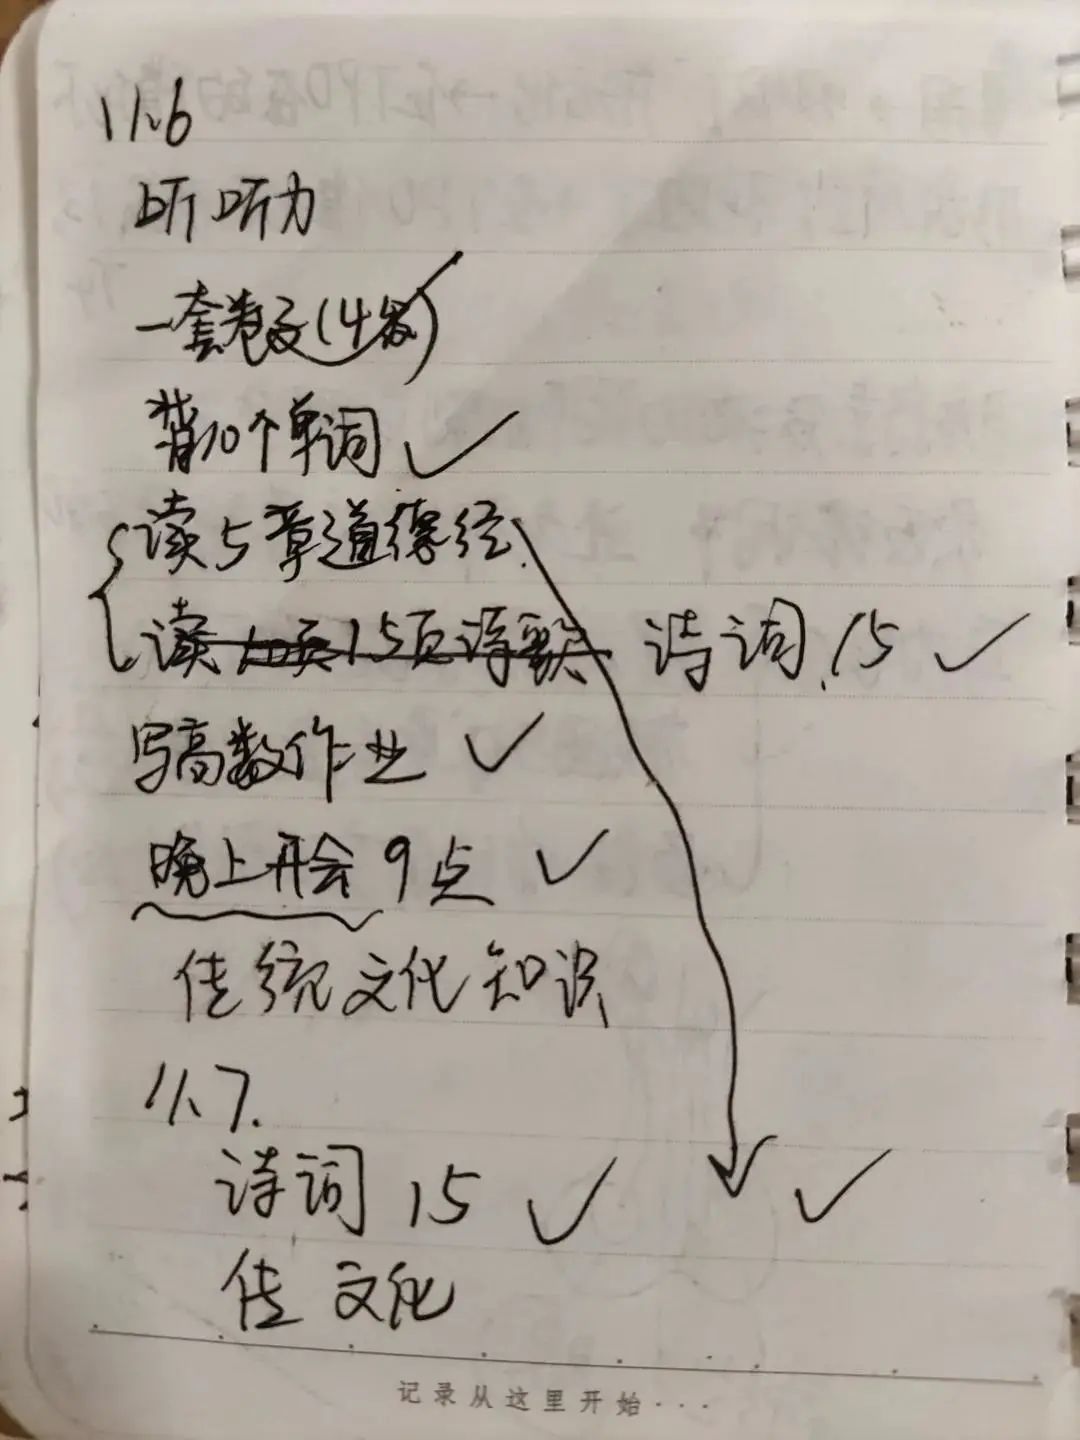 11.6
听听力
一套卷子(4级)
背10个单词 ✓
读5章道德经
读 10页 15页诗歌 诗词.15 ✓
写高数作业 ✓
晚上开会 9点 ✓
传统文化知识
11.7.
诗词 15 ✓ ✓
传 文化
记录从这里开始···